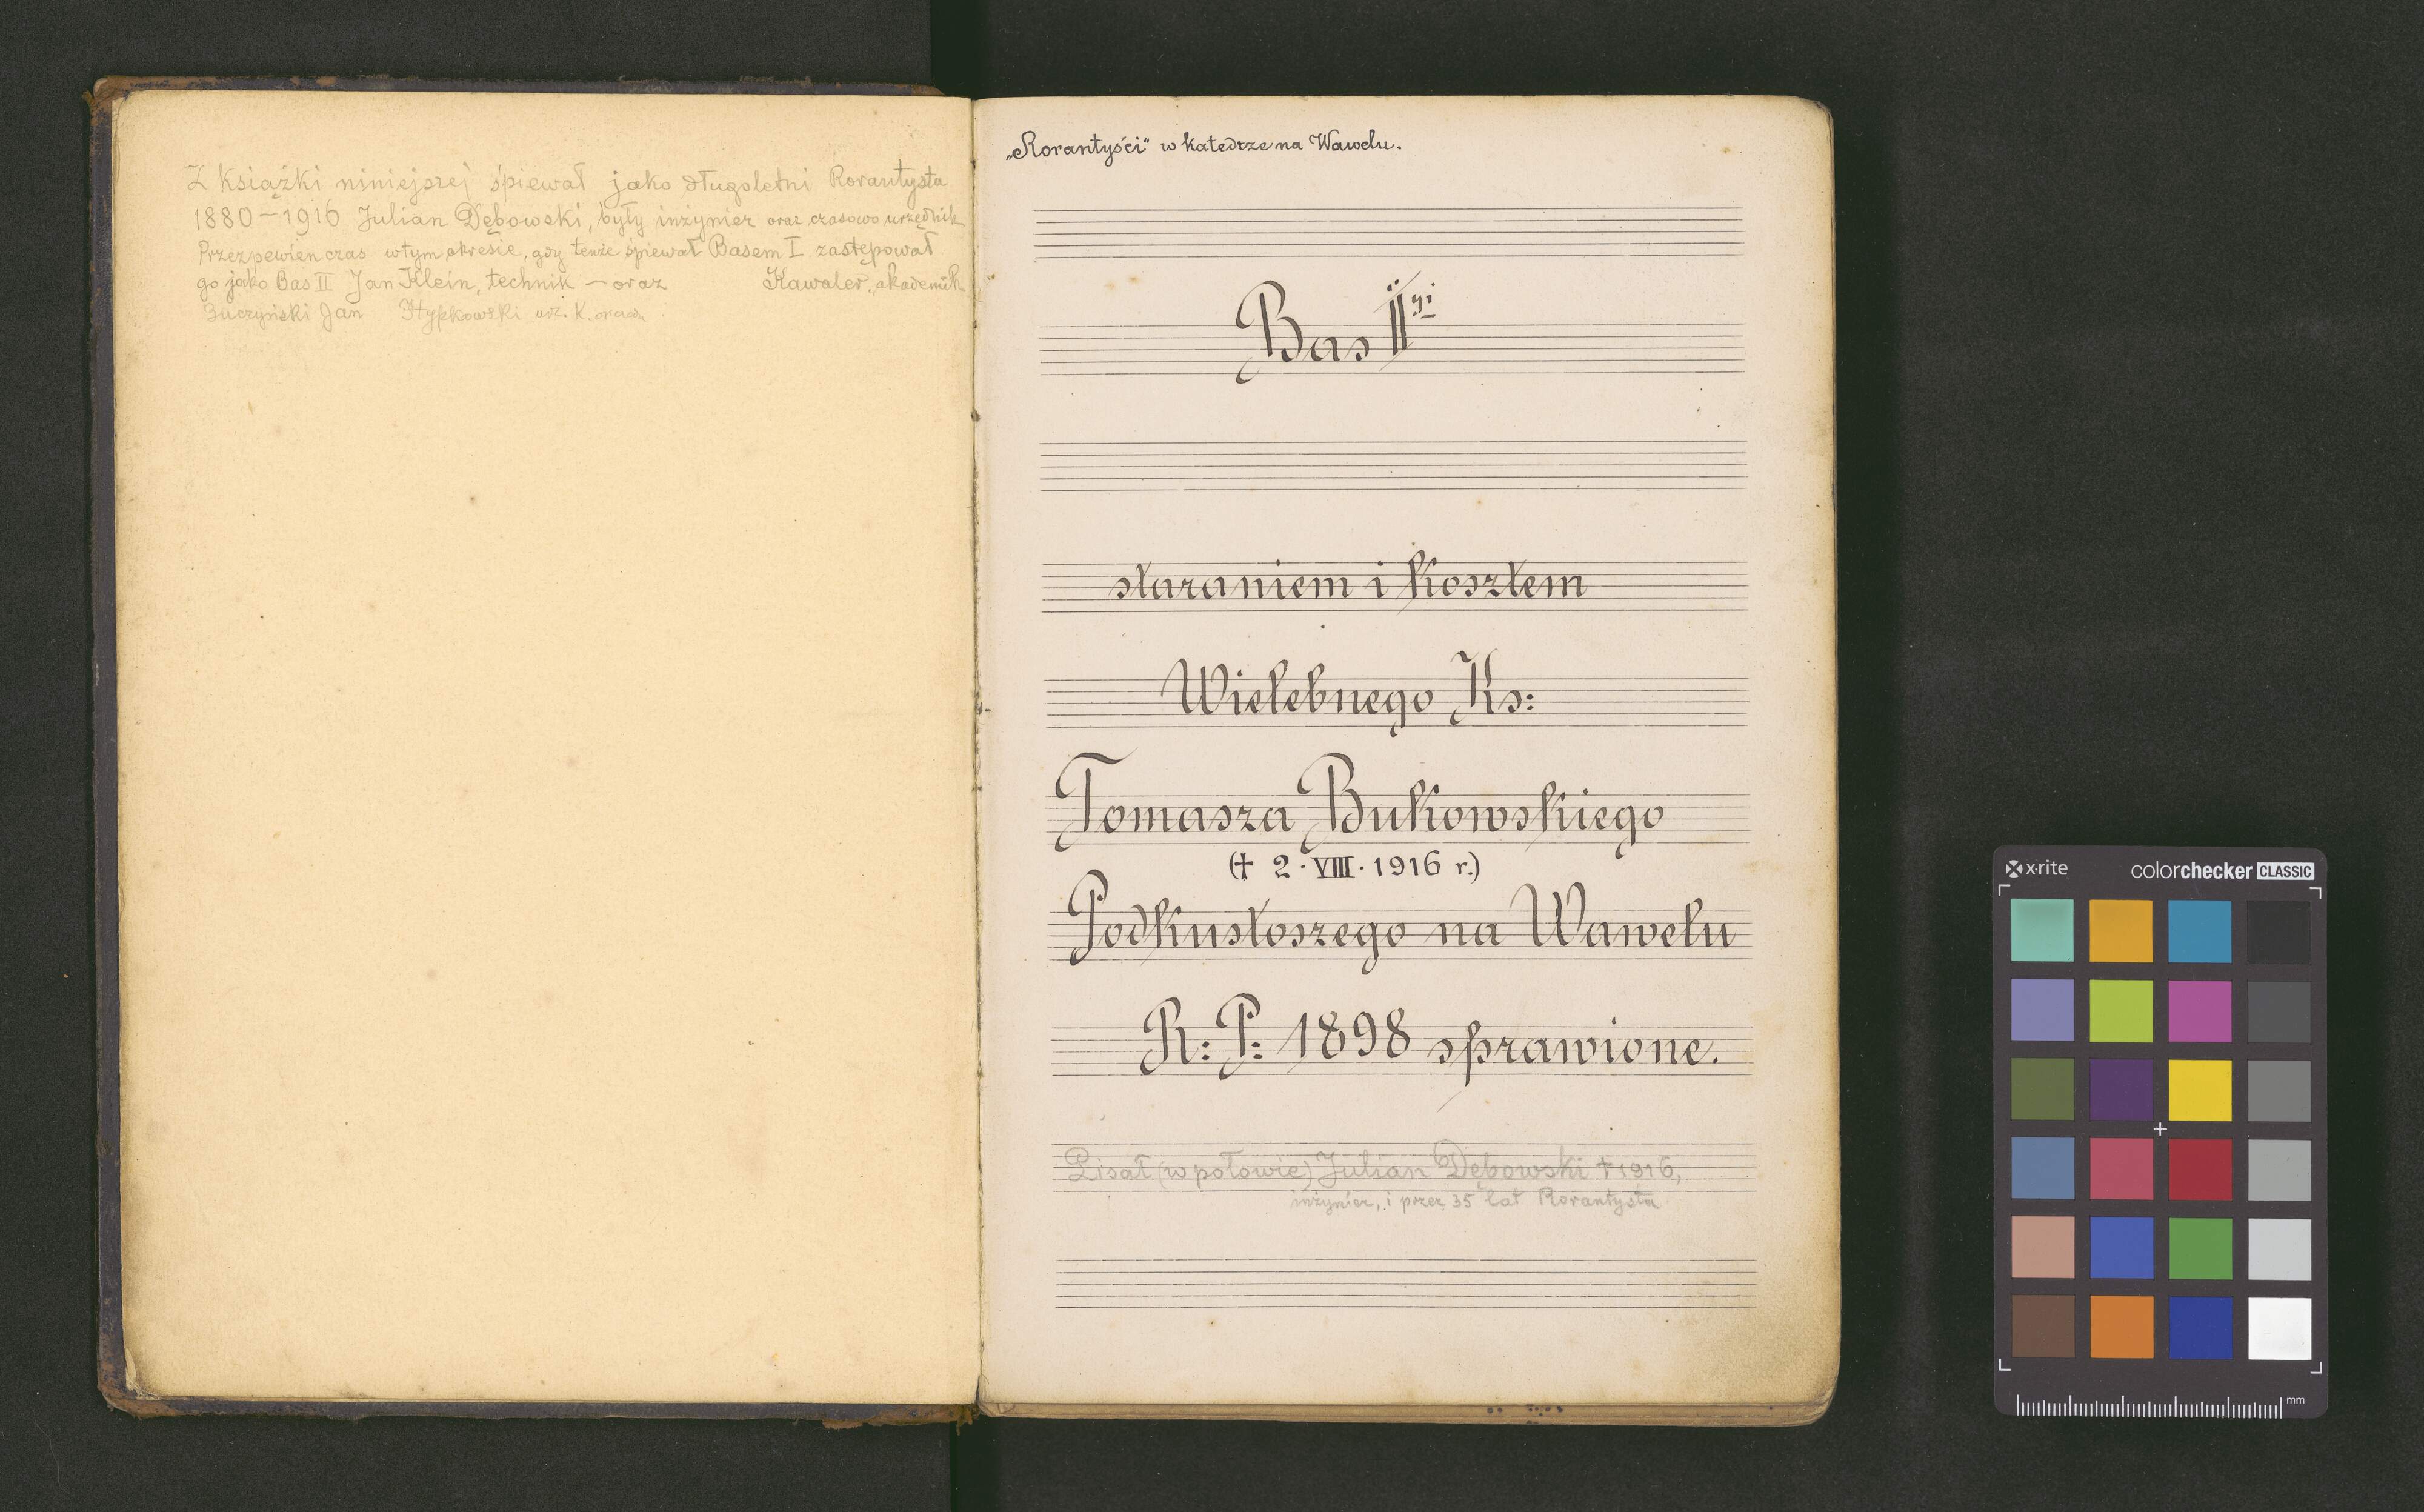 Z książki niniejszej śpiewał jako długoletni Rorantysta
1880–1916 Julian Dębowski, były inżynier oraz czasowo urzędnik
Przez pewien czas w tym okresie, gdy tenże śpiewał Basem I zastępował
go jako Bas II Jan Klein, technik – oraz Kawaler, akademik
Jan Hypkowski urz. K.
„Rorantyści" w katedrze na Wawelu.
Bas II gi
staraniem i kosztem
Wielebnego Ks:
Tomasza Bukowskiego
(† 2·VIII·1916 r.)
Podkustoszego na Wawelu
R: P: 1898 sprawione.
Pisał (w połowie) Julian Dębowski † 1916,
inżynier, i przez 35 lat Rorantysta
x·rite colorchecker CLASSIC
mm